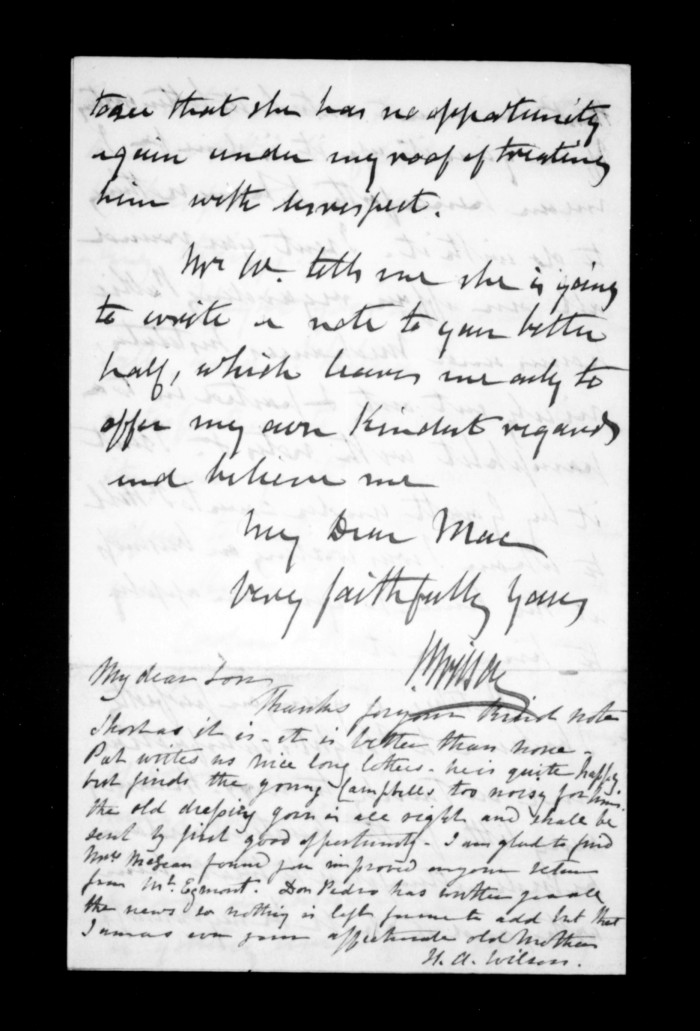 to see that she has no opportunity
again under my roof of treating
him with disrespect.
Mrs W. tells me she is going
to write a note to your better
half, which leaves me only to
offer my own kindest regards
and believe me
My Dear Mac
Very faithfully Yours
Wilson
My dear Son
Thanks for your third note
Short as it is - it is better than none -
Pat writes us nice long letters - he is quite happy
but finds the young Campbells too noisy for him.
the old dressing gown is all right and shall be
sent by first good opportunity - I am glad to find
Mrs McLean found you improved on your return
from Mt. Egmont. Don Pedro has written you all
the news so nothing is left for me to add but that
I am as ever your affectionate old Mother
H. A. Wilson.